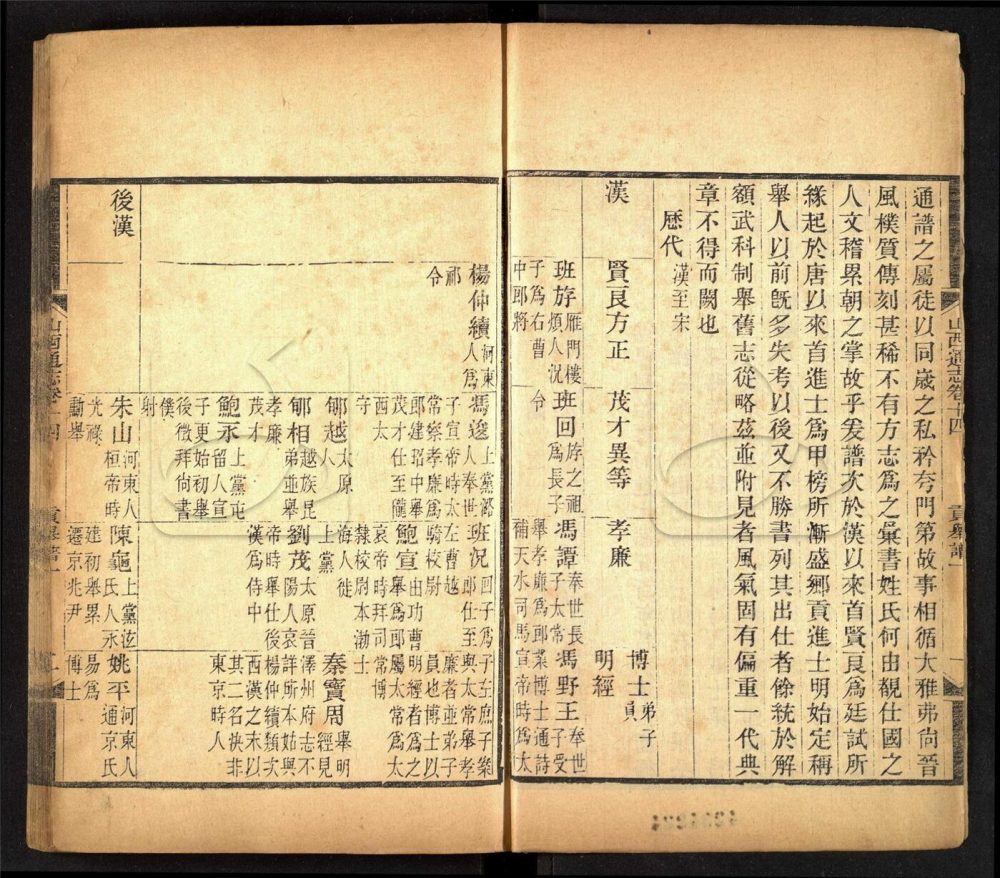 通譜之屬徒以同歲之私矜夸門第故事相循大雅弗尚晉
風樸質傳刻甚稀不有方志爲之彙書姓氏何由覩仕國之
人文稽累朝之掌故乎爰譜次於漢以來首賢良爲廷試所
緣起於唐以來首進士爲甲榜所漸盛鄉貢進士明始定稱
舉人以前旣多失考以後又不勝書列其出仕者餘統於解
額武科制舉舊志從略茲並附見者風氣固有偏重一代典
章不得而闕也
歷代 漢至宋
漢 賢良方正 茂才異等 孝廉 博士弟子員 明經
班斿 雁門樓煩人況子爲右曹中郎將
班回 斿之祖爲長子令
馮譚 奉世長子太常舉孝廉爲郎補天水司馬
馮野王 奉世子受業博士通詩宣帝時爲太
山西通志卷十四 貢舉譜一 一
楊仲續 河東人爲祁令
馮逡 上黨潞人奉世子宣帝時太常察孝廉爲郎建昭中舉茂才仕至隴西太守
班況 回子爲郎仕至左曹越騎校尉
子左庶子樂與太常舉孝廉者並弟子員也博士以明經者爲之屬太常爲太常博
郇越 太原人
鮑宣 由功曹舉爲郎哀帝時拜司隸校尉本渤海人徙上黨
郇相 越族昆弟並舉孝廉茂才
劉茂 太原晉陽人哀帝時舉仕後漢爲侍中
秦寶周 舉明經見澤州府志不詳所本始與楊仲續類次西漢之末以其二名快非東京時人
鮑永 上黨屯留人宣子更始初舉後徵拜尙書僕射
後漢
朱山 河東人桓帝時光祿勳舉
陳龜 上黨泫氏人永建初舉累遷京兆尹
姚平 河東人通京氏易爲博士
山西通志卷十四 貢舉譜一 二